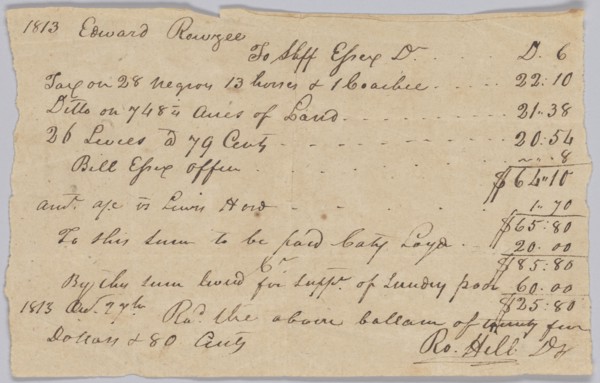 1813 Edward Rowzee
To Shff Essex Dr D. C
Tax on 28 negroes 13 horses & 1 Coachee 22:10
Ditto on 748 ½ Acres of Land 21"38
26 Levies @ 79 Cents 20:54
Bill Essex office 8
$64"10
amt. a/c vs Lewis Hord 1"70
$65:80
To this sum to be paid Caty Loyd 20.00
$85:80
Cr
By this sum for suppt. of Sundry poor 60.00
$25:80
1813 27th Recd. the above ballance of twenty five
Dollars & 80 Cents
Ro. Hill Ds